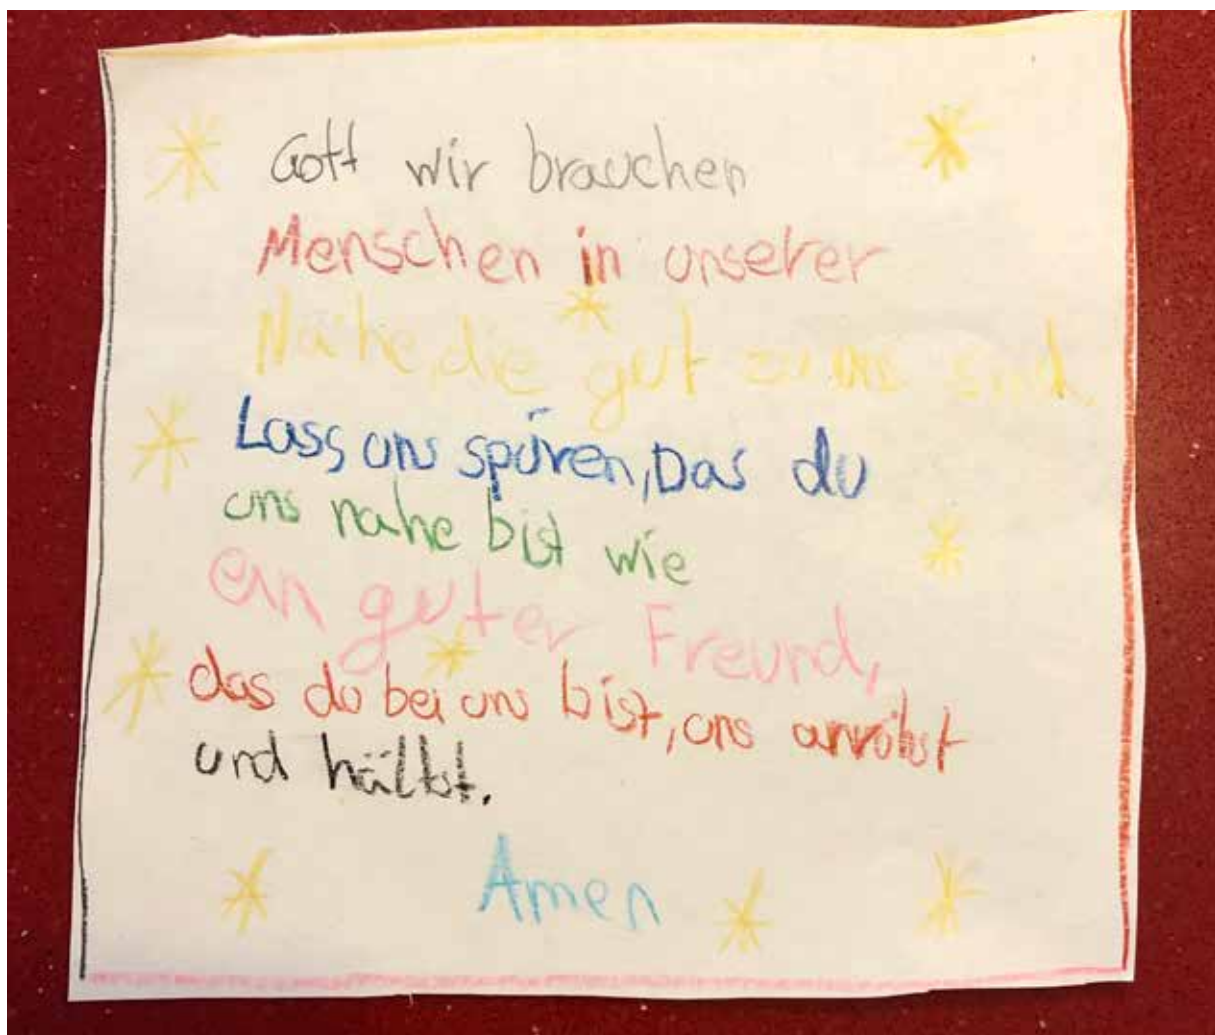 Gott wir brauchen
Menschen in unserer
Nähe, die gut zu uns sind
Lass uns spüren, Das du
uns nahe bist wie
ein guter Freund,
das du bei uns bist, uns anrührst
und hältst.
Amen